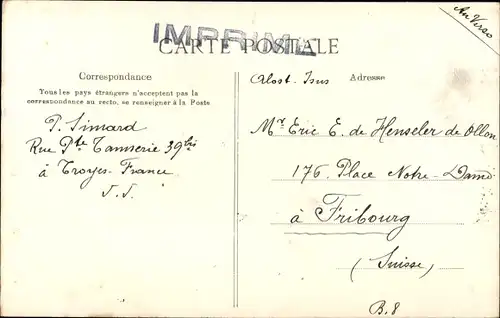 Au Verso
IMPRIMÉ
CARTE POSTALE
Correspondance
Tous les pays étrangers n'acceptent pas la
correspondance au recto, se renseigner à la Poste
P. Simard
Rue Pte Tannerie 39bis
à Troyes - France
Adresse
Mr Eric E. de Henseler de Ollon
176, Place Notre-Dame
à Fribourg
(Suisse)
B. 8